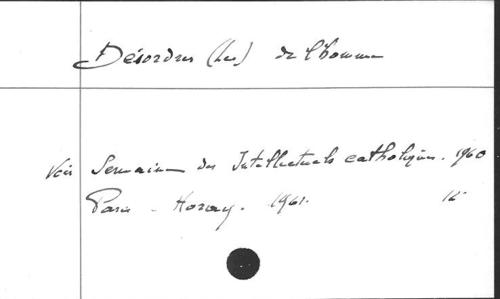 Désordres (Les) de l'homme
Voir Semaine des Intellectuels catholiques. 1960
Paris - Horay. 1961. 12°